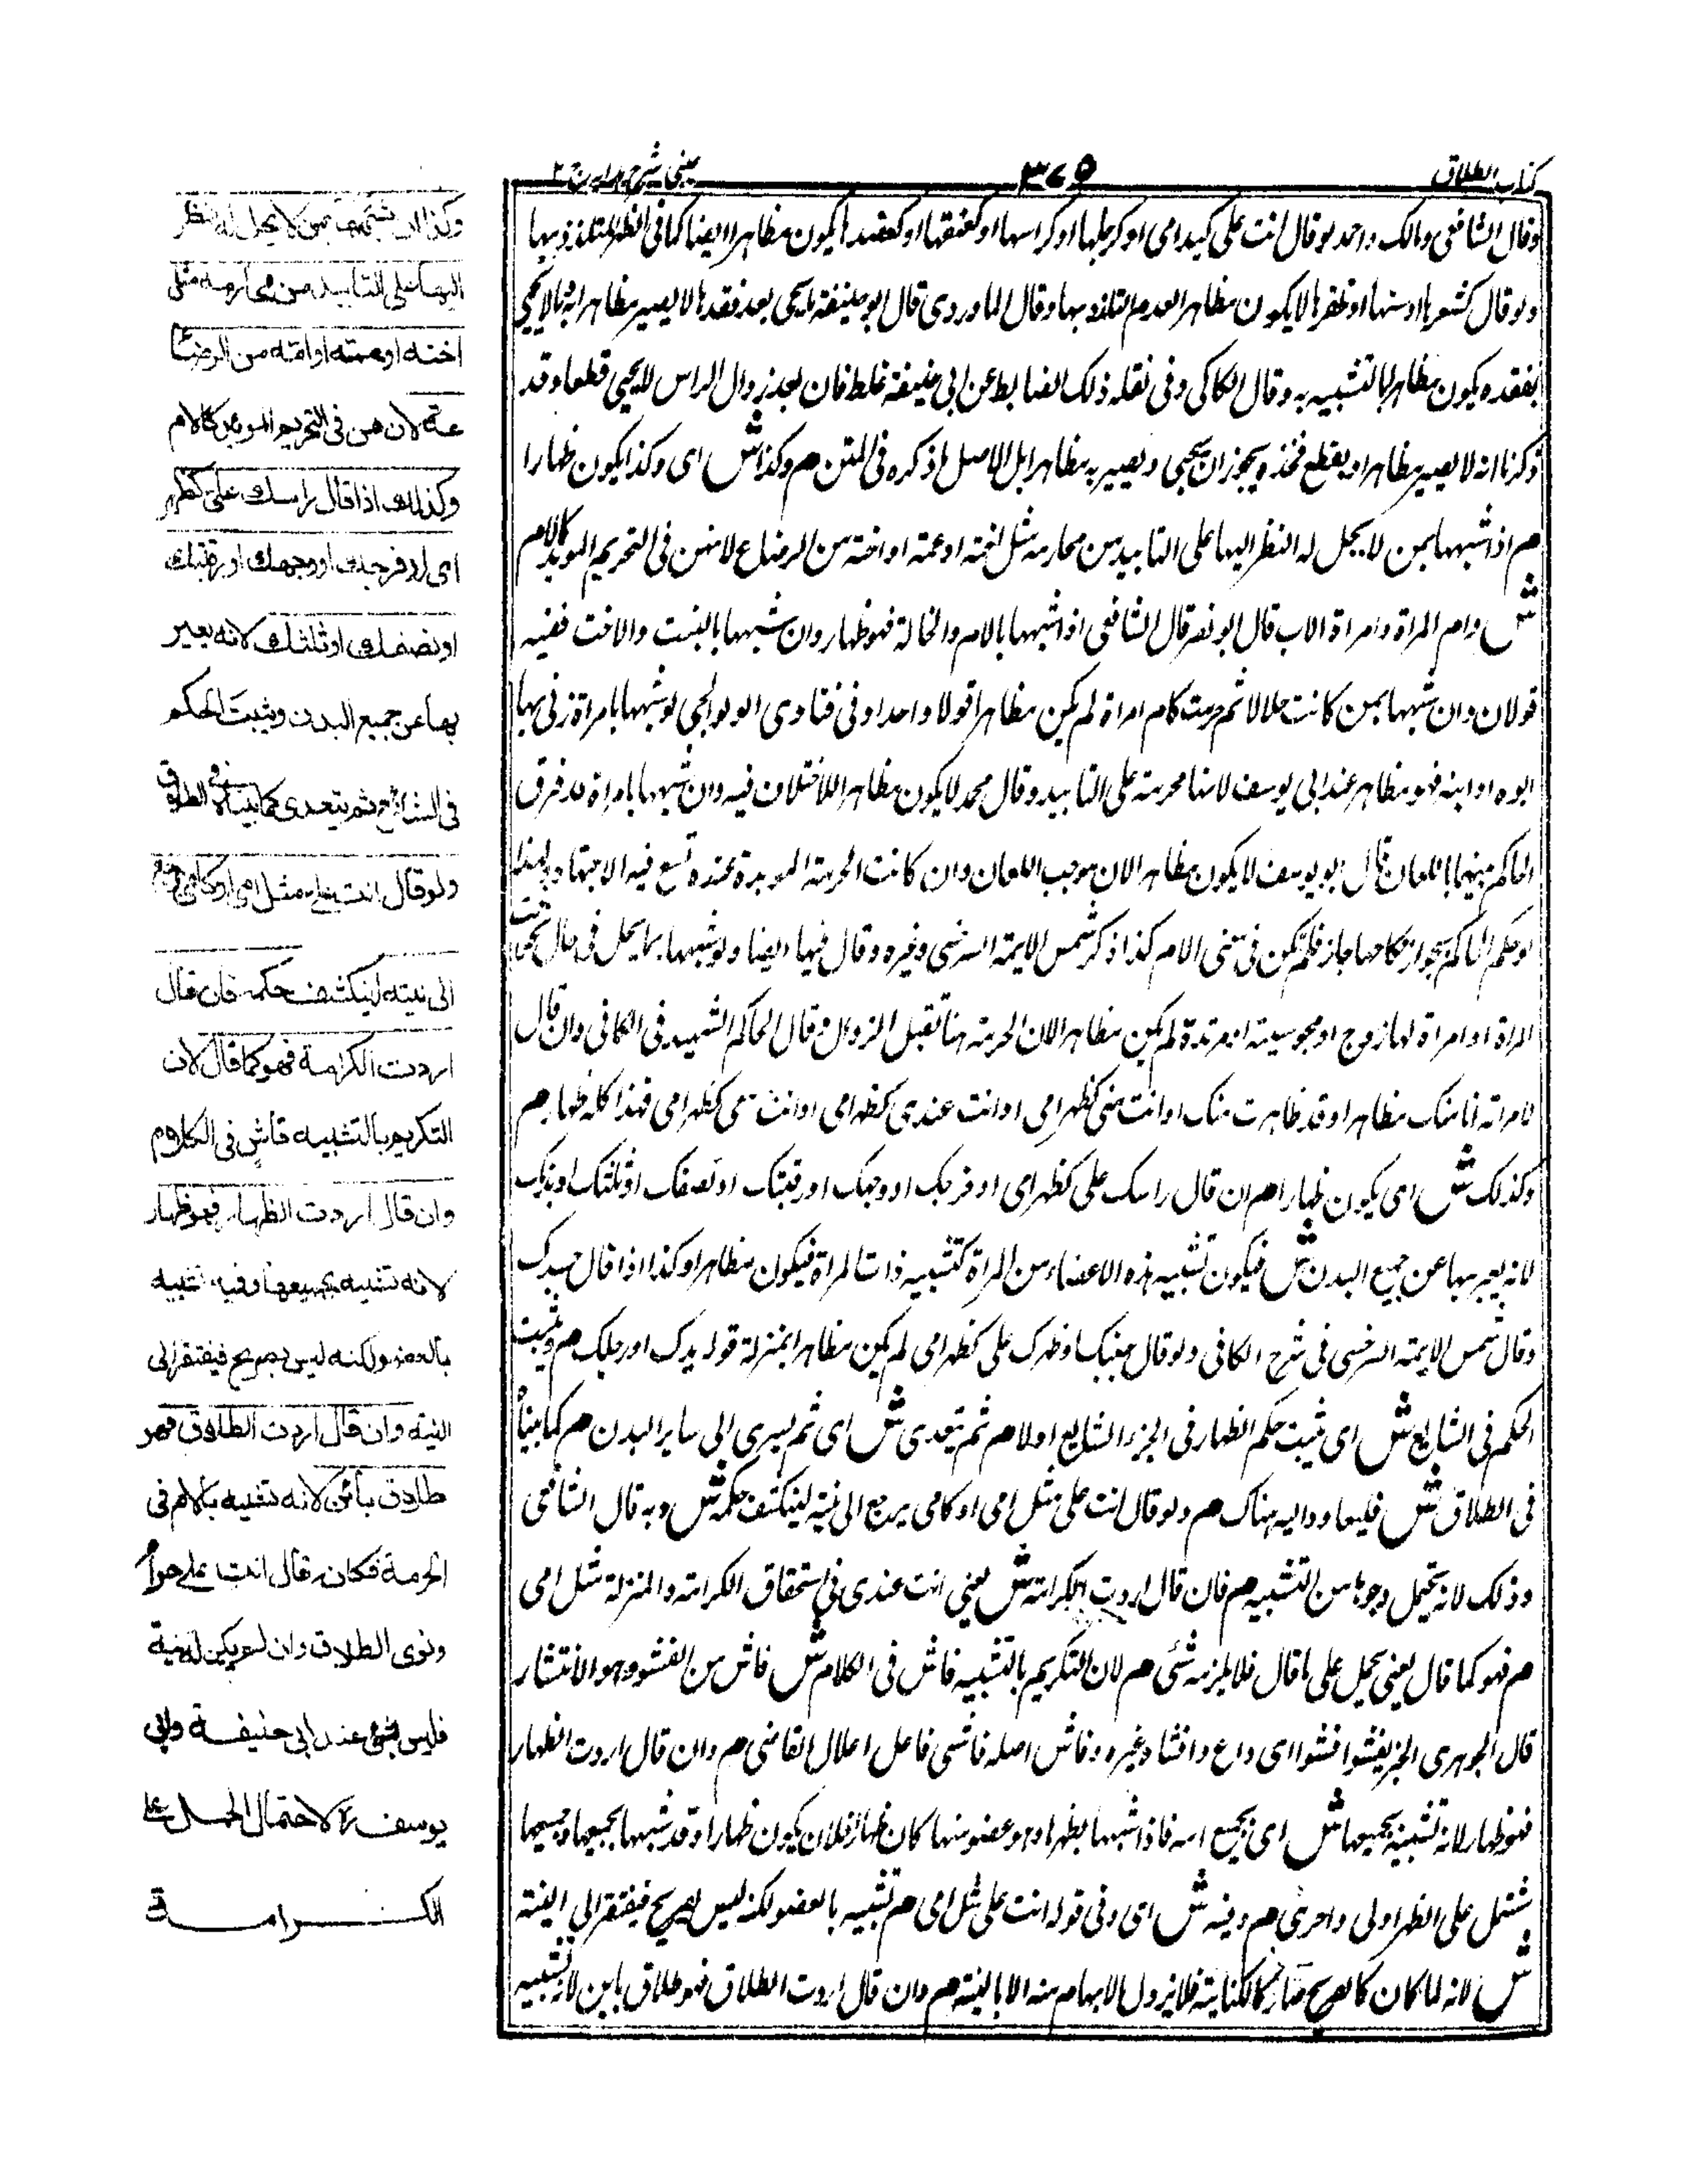 كتاب الطلاق
٣٧٩
عينى شرح هدايه ج ٢
وقال الشافعى ومالك واحمد لو قال انت على كيد امى او كرجلها او كراسها او كعنقها او كعقدها يكون مظاهرا ايضا كما فى الظهر للتلذذ بها
ولو قال كشعرها او سنها او ظفرها لا يكون مظاهرا لعدم التلذذ بها وقال الماوردى قال ابو حنيفة ما يحيى بعد فقدها لا يصير مظاهرا به وما لا يحيى
بفقده يكون مظاهرا بالتشبيه به وقال الكاكى وفى نقله ذلك الضابط عن ابى حنيفة غلط فان بعد زوال الراس لا يحيى قطعا وقد
ذكرنا انه لا يصير مظاهرا ويقطع فخذه ويجوز ان يحيى ويصير به مظاهرا بل الاصل ما ذكره فى المتن م وكذا ش اى وكذا يكون ظهارا
م اذا شبهها بمن لا يحل له النظر اليها على التابيد من محارمه مثل اخته او عمته او اخته من الرضاع لانهن فى التحريم الموبد كالام
ش وام المراة وامراة الاب قال ابو نصر قال الشافعى اذا شبهها بالام والخالة فهو ظهار وان شبهها بالبنت والاخت ففيه
قولان وان شبهها بمن كانت حلالا ثم حرمت كام امراة لم يكن مظاهرا قولا واحدا وفى فتاوى الولوالجى لو شبهها بامراة زنى بها
ابوه او ابنه فهو مظاهر عند ابى يوسف لانها محرمة على التابيد وقال محمد لا يكون مظاهرا للاختلاف فيه وان شبهها بامراة قد فرق
الحاكم بينهما باللعان قال ابو يوسف لا يكون مظاهرا لان موجب اللعان وان كانت الحرمة الموبدة عنده تسع فيه الاجتهاد ولهذا
لو حكم الحاكم بجواز نكاحها جاز فلم تكن فى معنى الام كذا ذكر شمس الايمة السرخسى وغيره وقال فيها ايضا ولو شبهها بما يحل فى حال كاخت
المراة او امراة لها زوج او مجوسية او مرتدة لم يكن مظاهرا لان الحرمة هنا تقبل الزوال وقال الحاكم الشهيد فى الكافى وان قال
لامراته انا منك مظاهر او قد ظاهرت منك او انت منى كظهر امى او انت عندى كظهر امى او انت معى كظهر امى فهذا كله ظهار م
وكذلك ش اى يكون ظهارا م ان قال راسك على كظهر امى او فرجك او وجهك او رقبتك او نصفك او ثلثك او بدنك
لانه يعبر بها عن جميع البدن ش فيكون تشبيه هذه الاعضاء من المراة كتشبيه ذات المراة فيكون مظاهرا وكذا اذا قال جسدك
وقال شمس الايمة السرخسى فى شرح الكافى ولو قال جنبك او ظهرك على كظهر امى لم يكن مظاهرا بمنزلة قوله يدك او رجلك م ويثبت
الحكم فى الشايع ش اى يثبت حكم الظهار فى الجزء الشايع اولا م ثم يتعدى ش اى ثم يسرى الى ساير البدن م كما بيناه
فى الطلاق ش فليعاود اليه هناك م ولو قال انت على مثل امى او كامى يرجع الى نيته لينكشف حكمه ش وبه قال الشافعى
وذلك لانه يحتمل وجوها من التشبيه م فان قال اردت الكرامة ش يعنى انت عندى فى استحقاق الكرامة والمنزلة مثل امى
م فهو كما قال يعنى يحمل على ما قال فلا يلزمه شئ م لان التكريم بالتشبيه فاش فى الكلام ش فاش من الفشو وهو الانتشار
قال الجوهرى الخبر يفشو فشوا اى ذاع وافشاه غيره وفاش اصله فاشى فاعل اعلال القاضى م وان قال اردت الظهار
فهو ظهار لانه تشبيه بجميعها ش اى بجميع امه فاذا شبهها بظهرها وهو عضو منها كان ظهارا فلان يكون ظهارا وقد شبهها بجميعها وجميعها
مشتمل على الظهر اولى واحرى م وفيه ش اى وفى قوله انت على مثل امى م تشبيه بالعضو لكنه ليس بصريح فيفتقر الى النية
ش لانه لما كان كالصريح صار كالكناية فلا يزول الابهام منه الا بالنية م وان قال اردت الطلاق فهو طلاق باين لانه تشبيه
وكذا ان شبهها بمن لا يحل له النظر
اليها على التابيد من محارمه مثل
اخته او عمته او امه من الرضا
عة لانهن فى التحريم المؤبد كالام
وكذلك اذا قال راسك على كظهر
امى او فرجك او وجهك او رقبتك
او نصفك او ثلثك لانه يعبر
بها عن جميع البدن ويثبت الحكم
فى الشائع ثم يتعدى كما بيناه فى الطلاق
ولو قال انت على مثل امى او كامى يرجع
الى نيته لينكشف حكمه فان قال
اردت الكرامة فهو كما قال لان
التكريم بالتشبيه فاش فى الكلام
وان قال اردت الظهار فهو ظهار
لانه تشبيه بجميعها وفيه تشبيه
بالعضو لكنه ليس بصريح فيفتقر الى
النية وان قال اردت الطلاق فهو
طلاق بائن لانه تشبيه بالام فى
الحرمة فكانه قال انت على حرام
ونوى الطلاق وان لم يكن له نية
فليس بشئ عند ابى حنيفة وابى
يوسف رح لاحتمال الحمل على
الكرامة